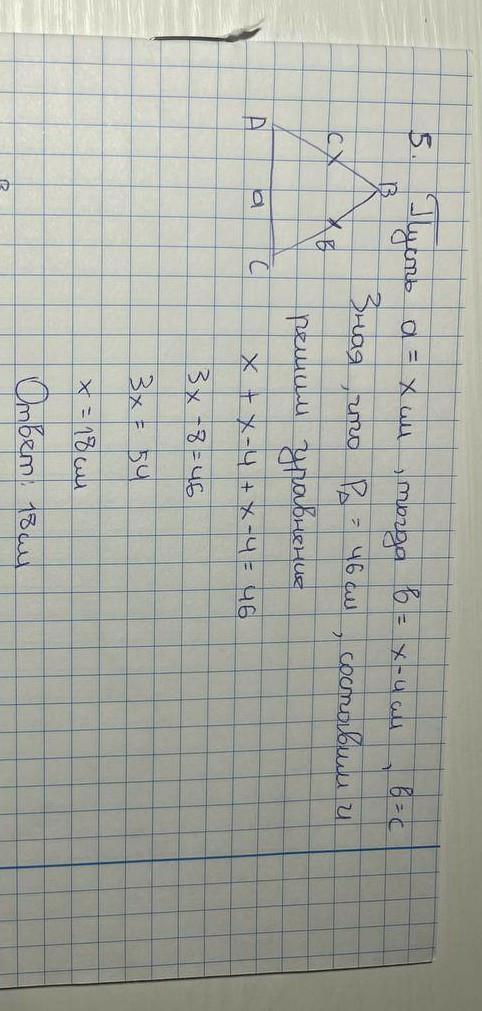 5. Пусть a = x см, тогда в = x-4 см, в=c
Зная, что P△ = 46 см, составим и
решим уравнение
x + x-4 + x-4 = 46
3x -8 = 46
3x = 54
x = 18 см
Ответ: 18 см
B
c
в
A
a
C